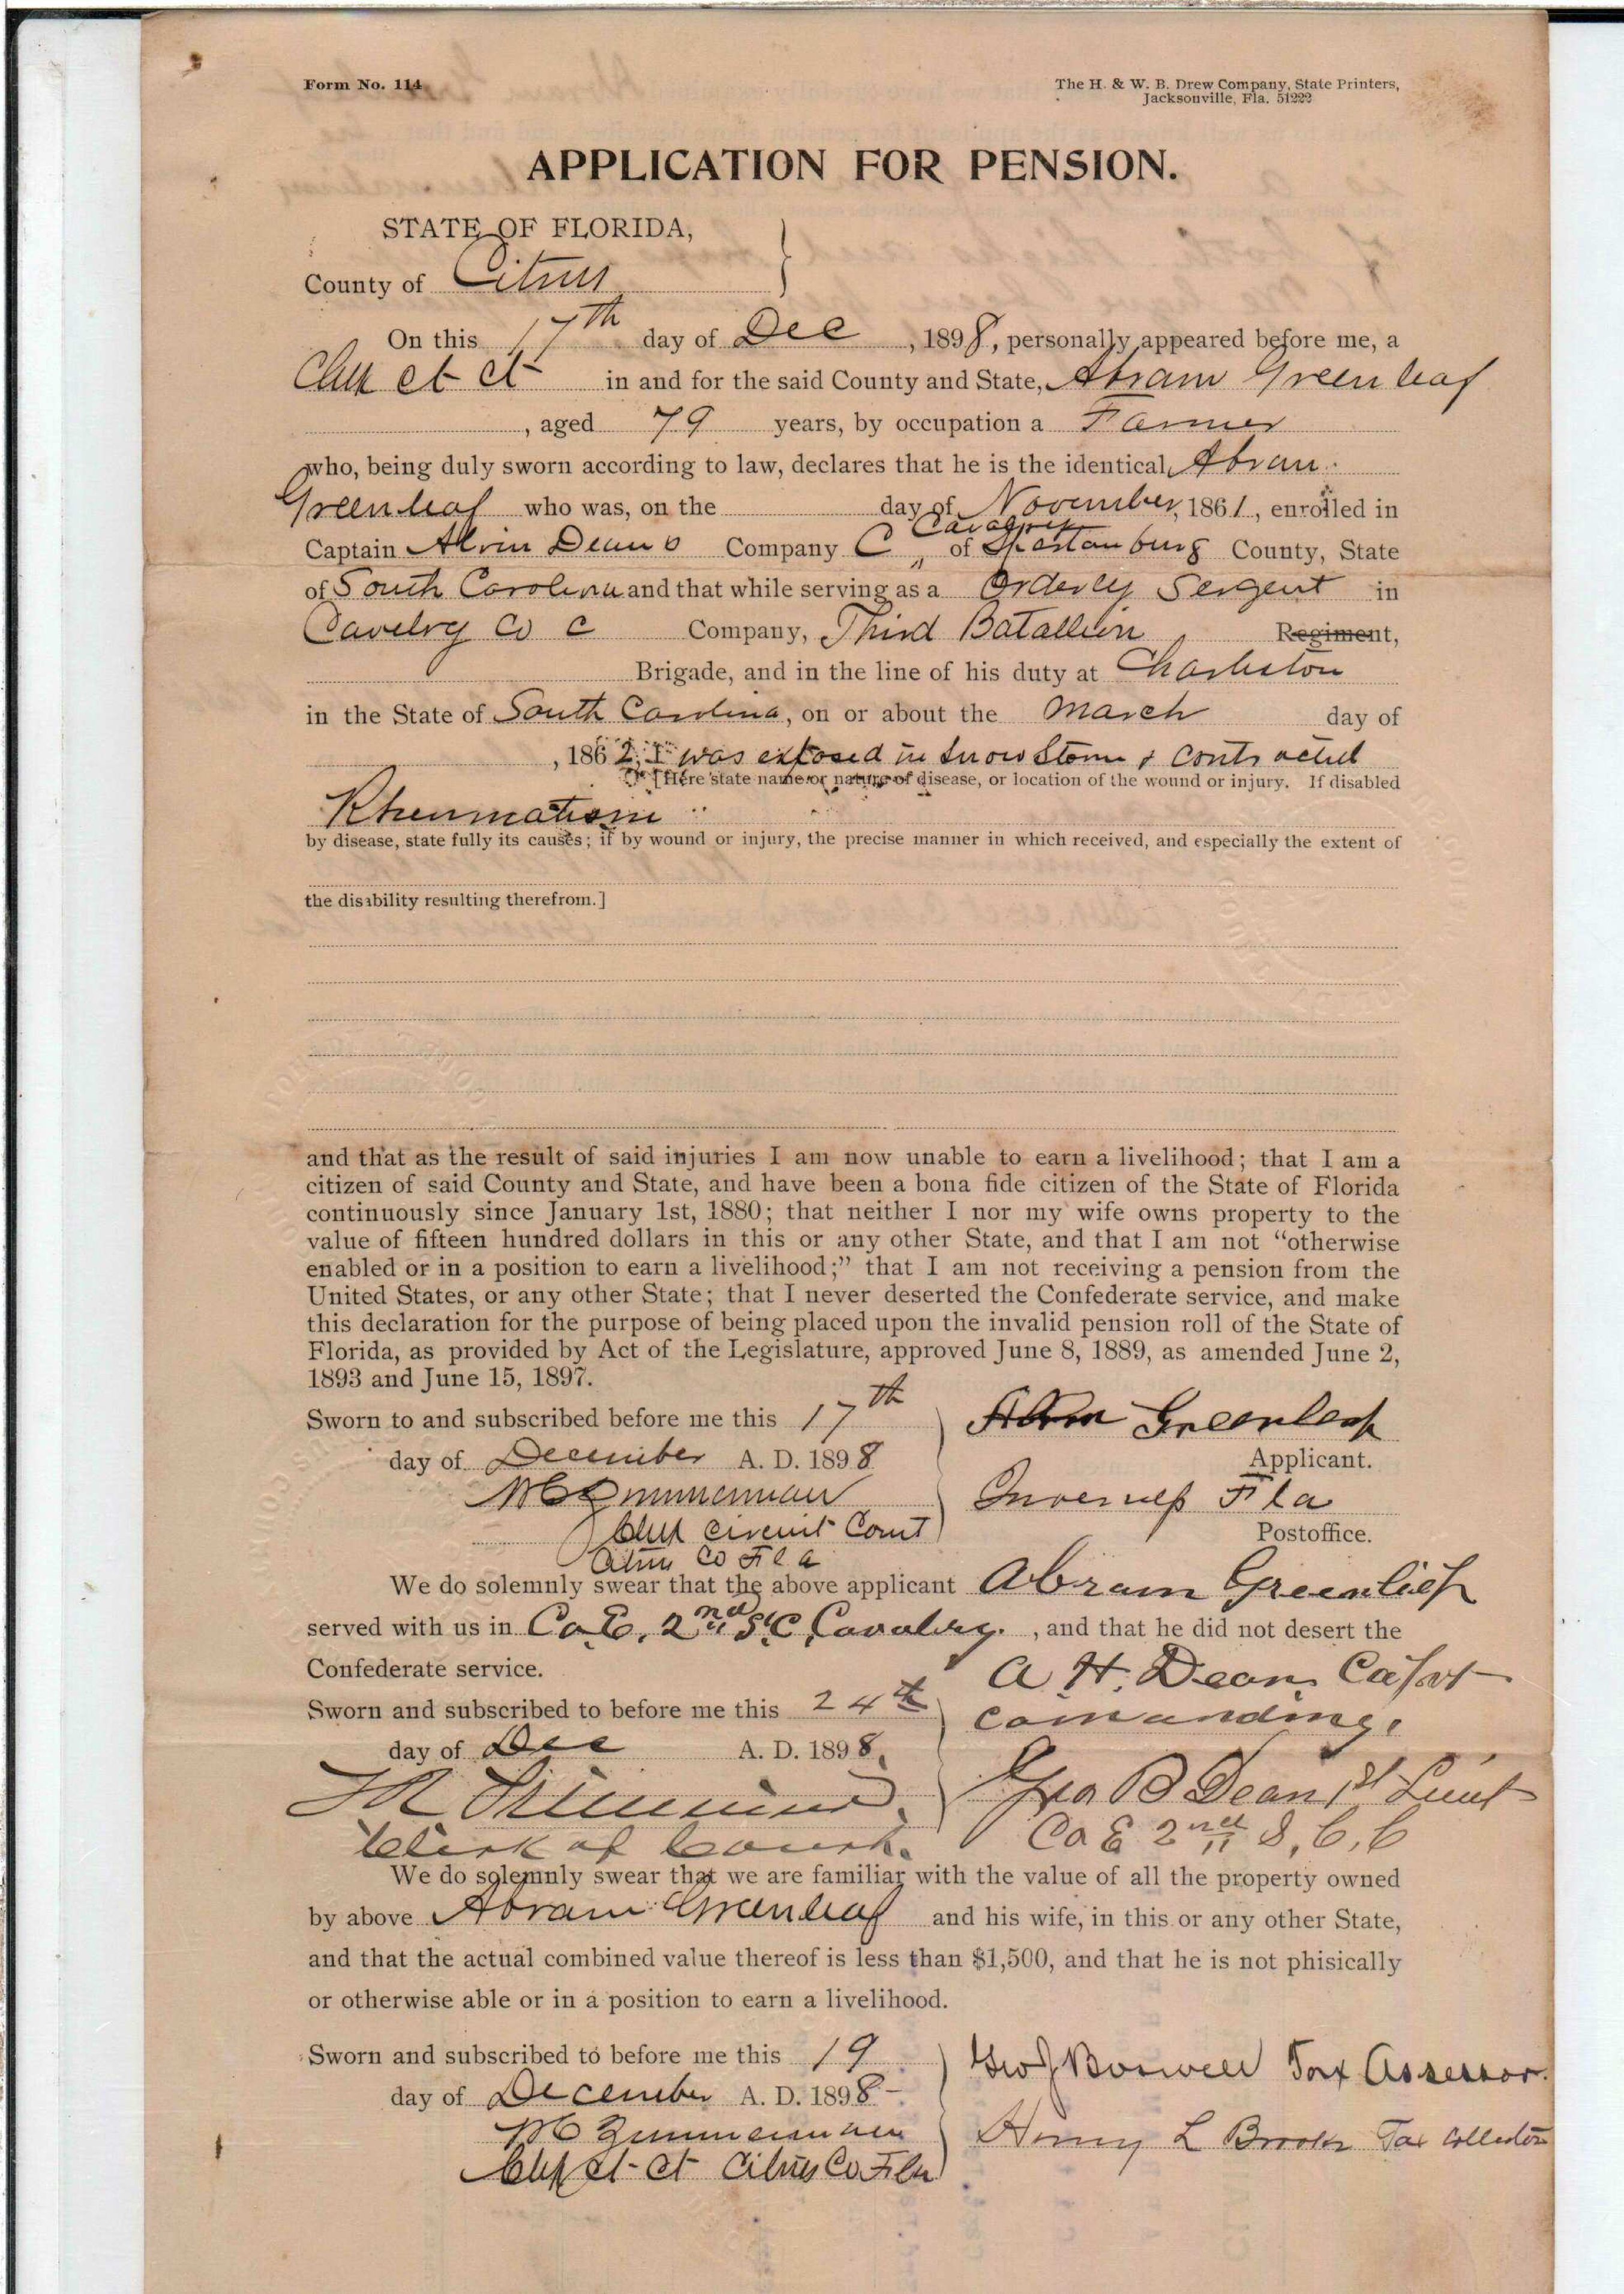 Form No. 114
The H. & W. B. Drew Company, State Printers,
Jacksonville, Fla. 51222
APPLICATION FOR PENSION.
STATE OF FLORIDA,
County of Citrus
On this 17th day of Dec , 1898, personally appeared before me, a
Clerk Ct Ct in and for the said County and State, Abram Greenleaf
, aged 79 years, by occupation a Farmer
who, being duly sworn according to law, declares that he is the identical Abram
Greenleaf who was, on the day of November, 1861, enrolled in
Cavalry
Captain Alvin Deans Company C of Spartanburg County, State
of South Carolina and that while serving as a Orderly Sergent in
Cavelry Co C Company, Third Batallion Regiment,
Brigade, and in the line of his duty at Charleston
in the State of South Carolina, on or about the March day of
, 1862, I was exposed in Snow Storm & contracted
[Here state name or nature of disease, or location of the wound or injury. If disabled
Rheumatism
by disease, state fully its causes; if by wound or injury, the precise manner in which received, and especially the extent of
the disability resulting therefrom.]
and that as the result of said injuries I am now unable to earn a livelihood; that I am a
citizen of said County and State, and have been a bona fide citizen of the State of Florida
continuously since January 1st, 1880; that neither I nor my wife owns property to the
value of fifteen hundred dollars in this or any other State, and that I am not "otherwise
enabled or in a position to earn a livelihood;" that I am not receiving a pension from the
United States, or any other State; that I never deserted the Confederate service, and make
this declaration for the purpose of being placed upon the invalid pension roll of the State of
Florida, as provided by Act of the Legislature, approved June 8, 1889, as amended June 2,
1893 and June 15, 1897.
Sworn to and subscribed before me this 17th
day of December A. D. 1898
W C Zimmerman
Clerk Circuit Court
Citrus Co Fla
Abram Greenleaf
Applicant.
Inverness Fla
Postoffice.
We do solemnly swear that the above applicant Abram Greenlief
served with us in Co. E. 2nd S.C. Cavalry. , and that he did not desert the
Confederate service.
Sworn and subscribed to before me this 24th
day of Dec A. D. 1898.
Clerk of Court.
A. H. Dean Capt
Comanding.
Geo B Dean 1st Lieut
Co E 2nd S, C, C
We do solemnly swear that we are familiar with the value of all the property owned
by above Abram Greenleaf and his wife, in this or any other State,
and that the actual combined value thereof is less than $1,500, and that he is not phisically
or otherwise able or in a position to earn a livelihood.
Sworn and subscribed to before me this 19
day of December A. D. 1898-
W C Zimmerman
Clerk Ct Ct Citrus Co Fla
Geo J Boswell Tax Assessor.
Henry L Brooks Tax Collector